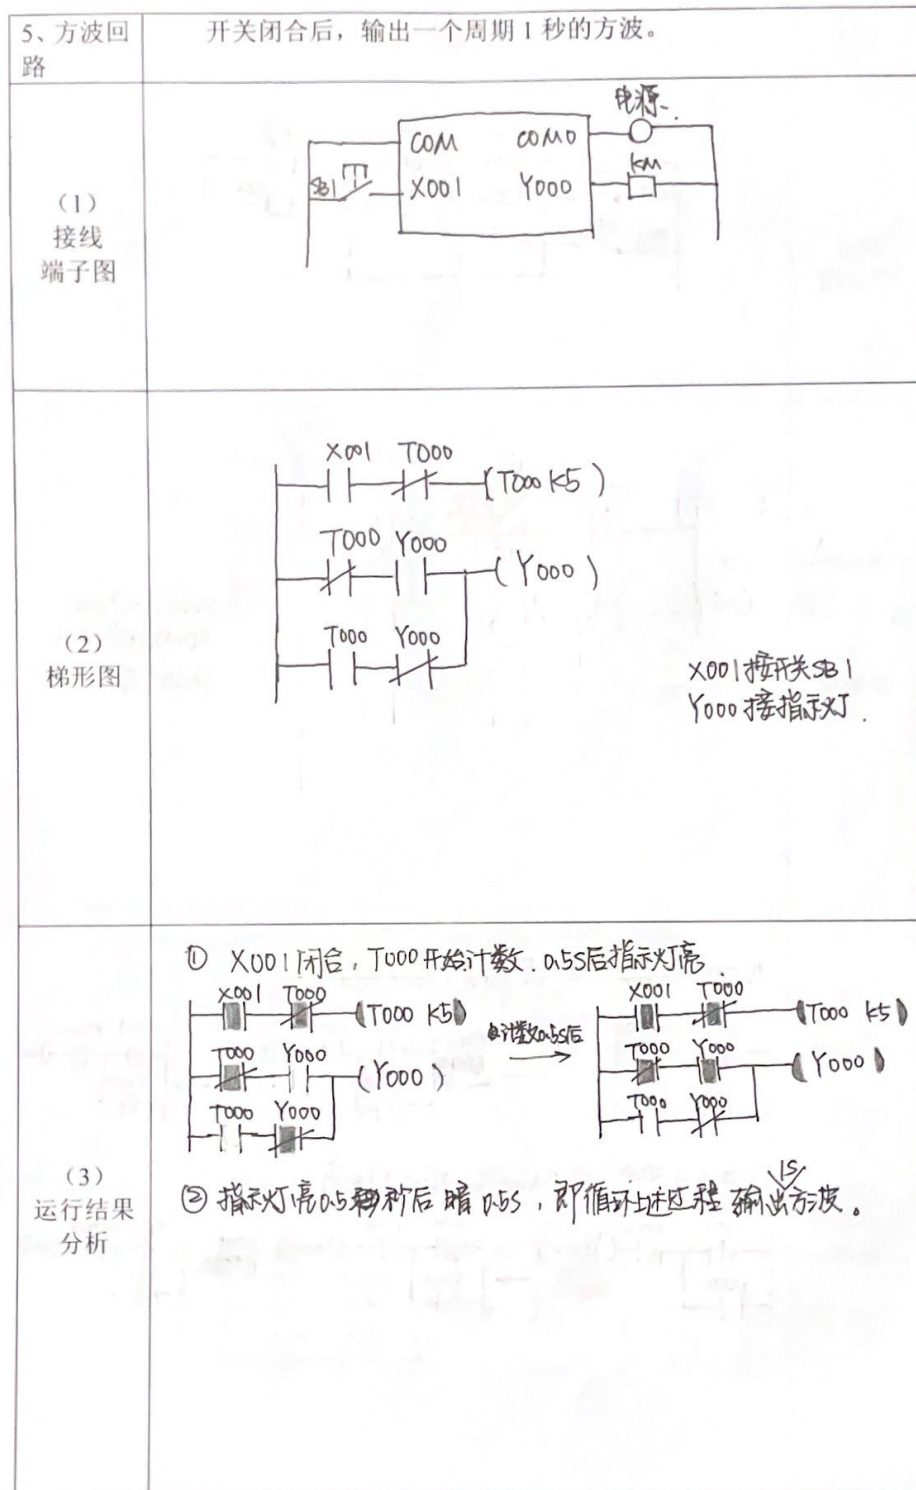 5、方波回路
开关闭合后，输出一个周期1秒的方波。
（1）
接线
端子图
电源
COM COM0
KM
SB1 X001 Y000
（2）
梯形图
X001 T000
(T000 K5)
T000 Y000
(Y000)
T000 Y000
X001接开关SB1
Y000接指示灯.
（3）
运行结果
分析
① X001闭合，T000开始计数.0.5S后指示灯亮
X001 T000
(T000 K5)
T000 Y000
(Y000)
T000 Y000
计数0.5S后
X001 T000
(T000 K5)
T000 Y000
(Y000)
T000 Y000
1S
② 指示灯亮0.5秒后暗0.5S，即循环上述过程输出方波。